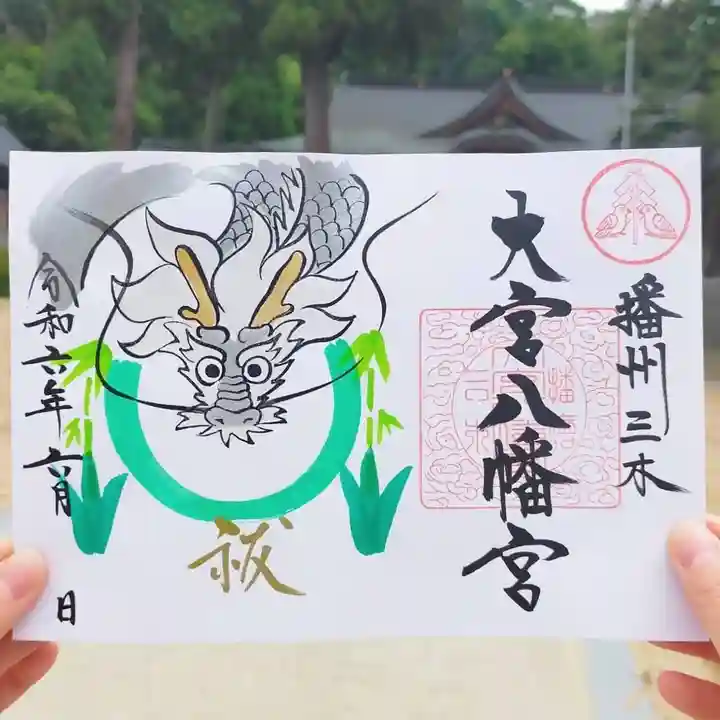 播州三木
大宮八幡宮
祓
令和六年六月 日